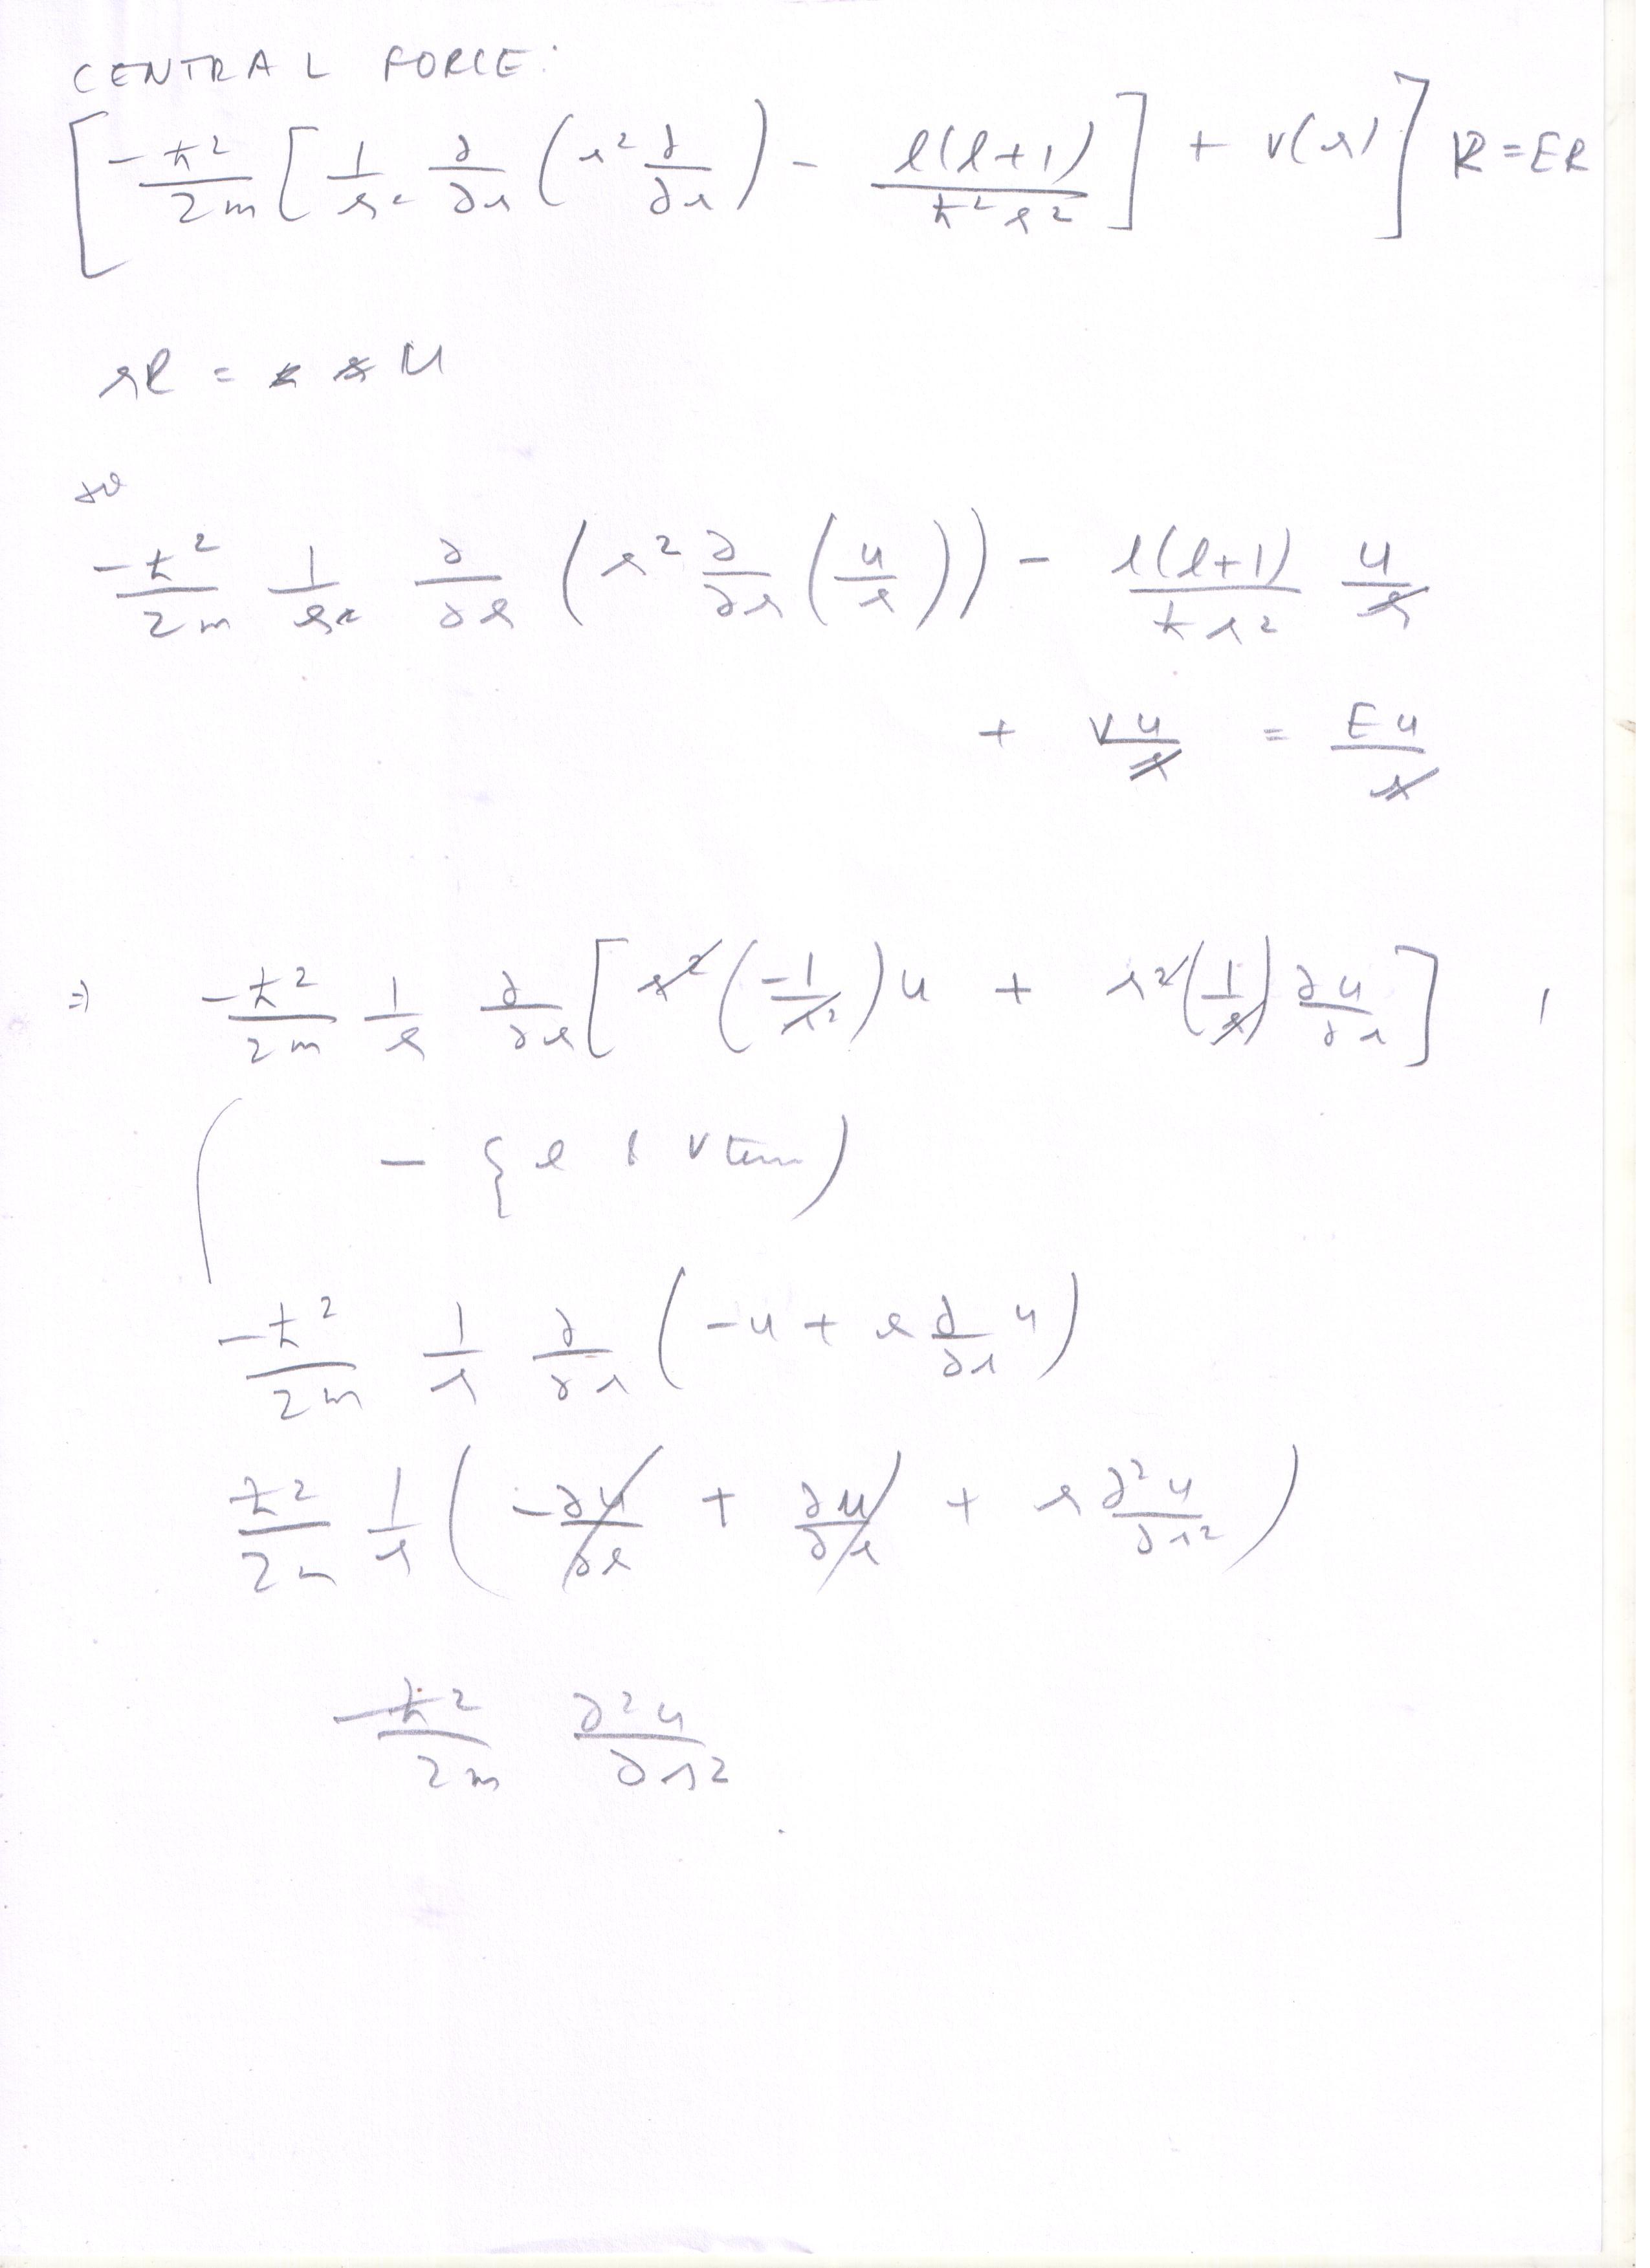 CENTRAL FORCE:
[ -ħ²/2m [ 1/r² ∂/∂r ( r² ∂/∂r ) - l(l+1)/ħ²r² ] + V(r) ] R = ER
rR = u
so
-ħ²/2m 1/r² ∂/∂r ( r² ∂/∂r ( u/r ) ) - l(l+1)/ħr² u/r
+ Vu/r = Eu/r
⇒ -ħ²/2m 1/r ∂/∂r [ r² ( -1/r² ) u + r² ( 1/r ) ∂u/∂r ]
( - { l & V term )
-ħ²/2m 1/r ∂/∂r ( -u + r ∂/∂r u )
ħ²/2m 1/r ( -∂u/∂r + ∂u/∂r + r ∂²u/∂r² )
-ħ²/2m ∂²u/∂r²